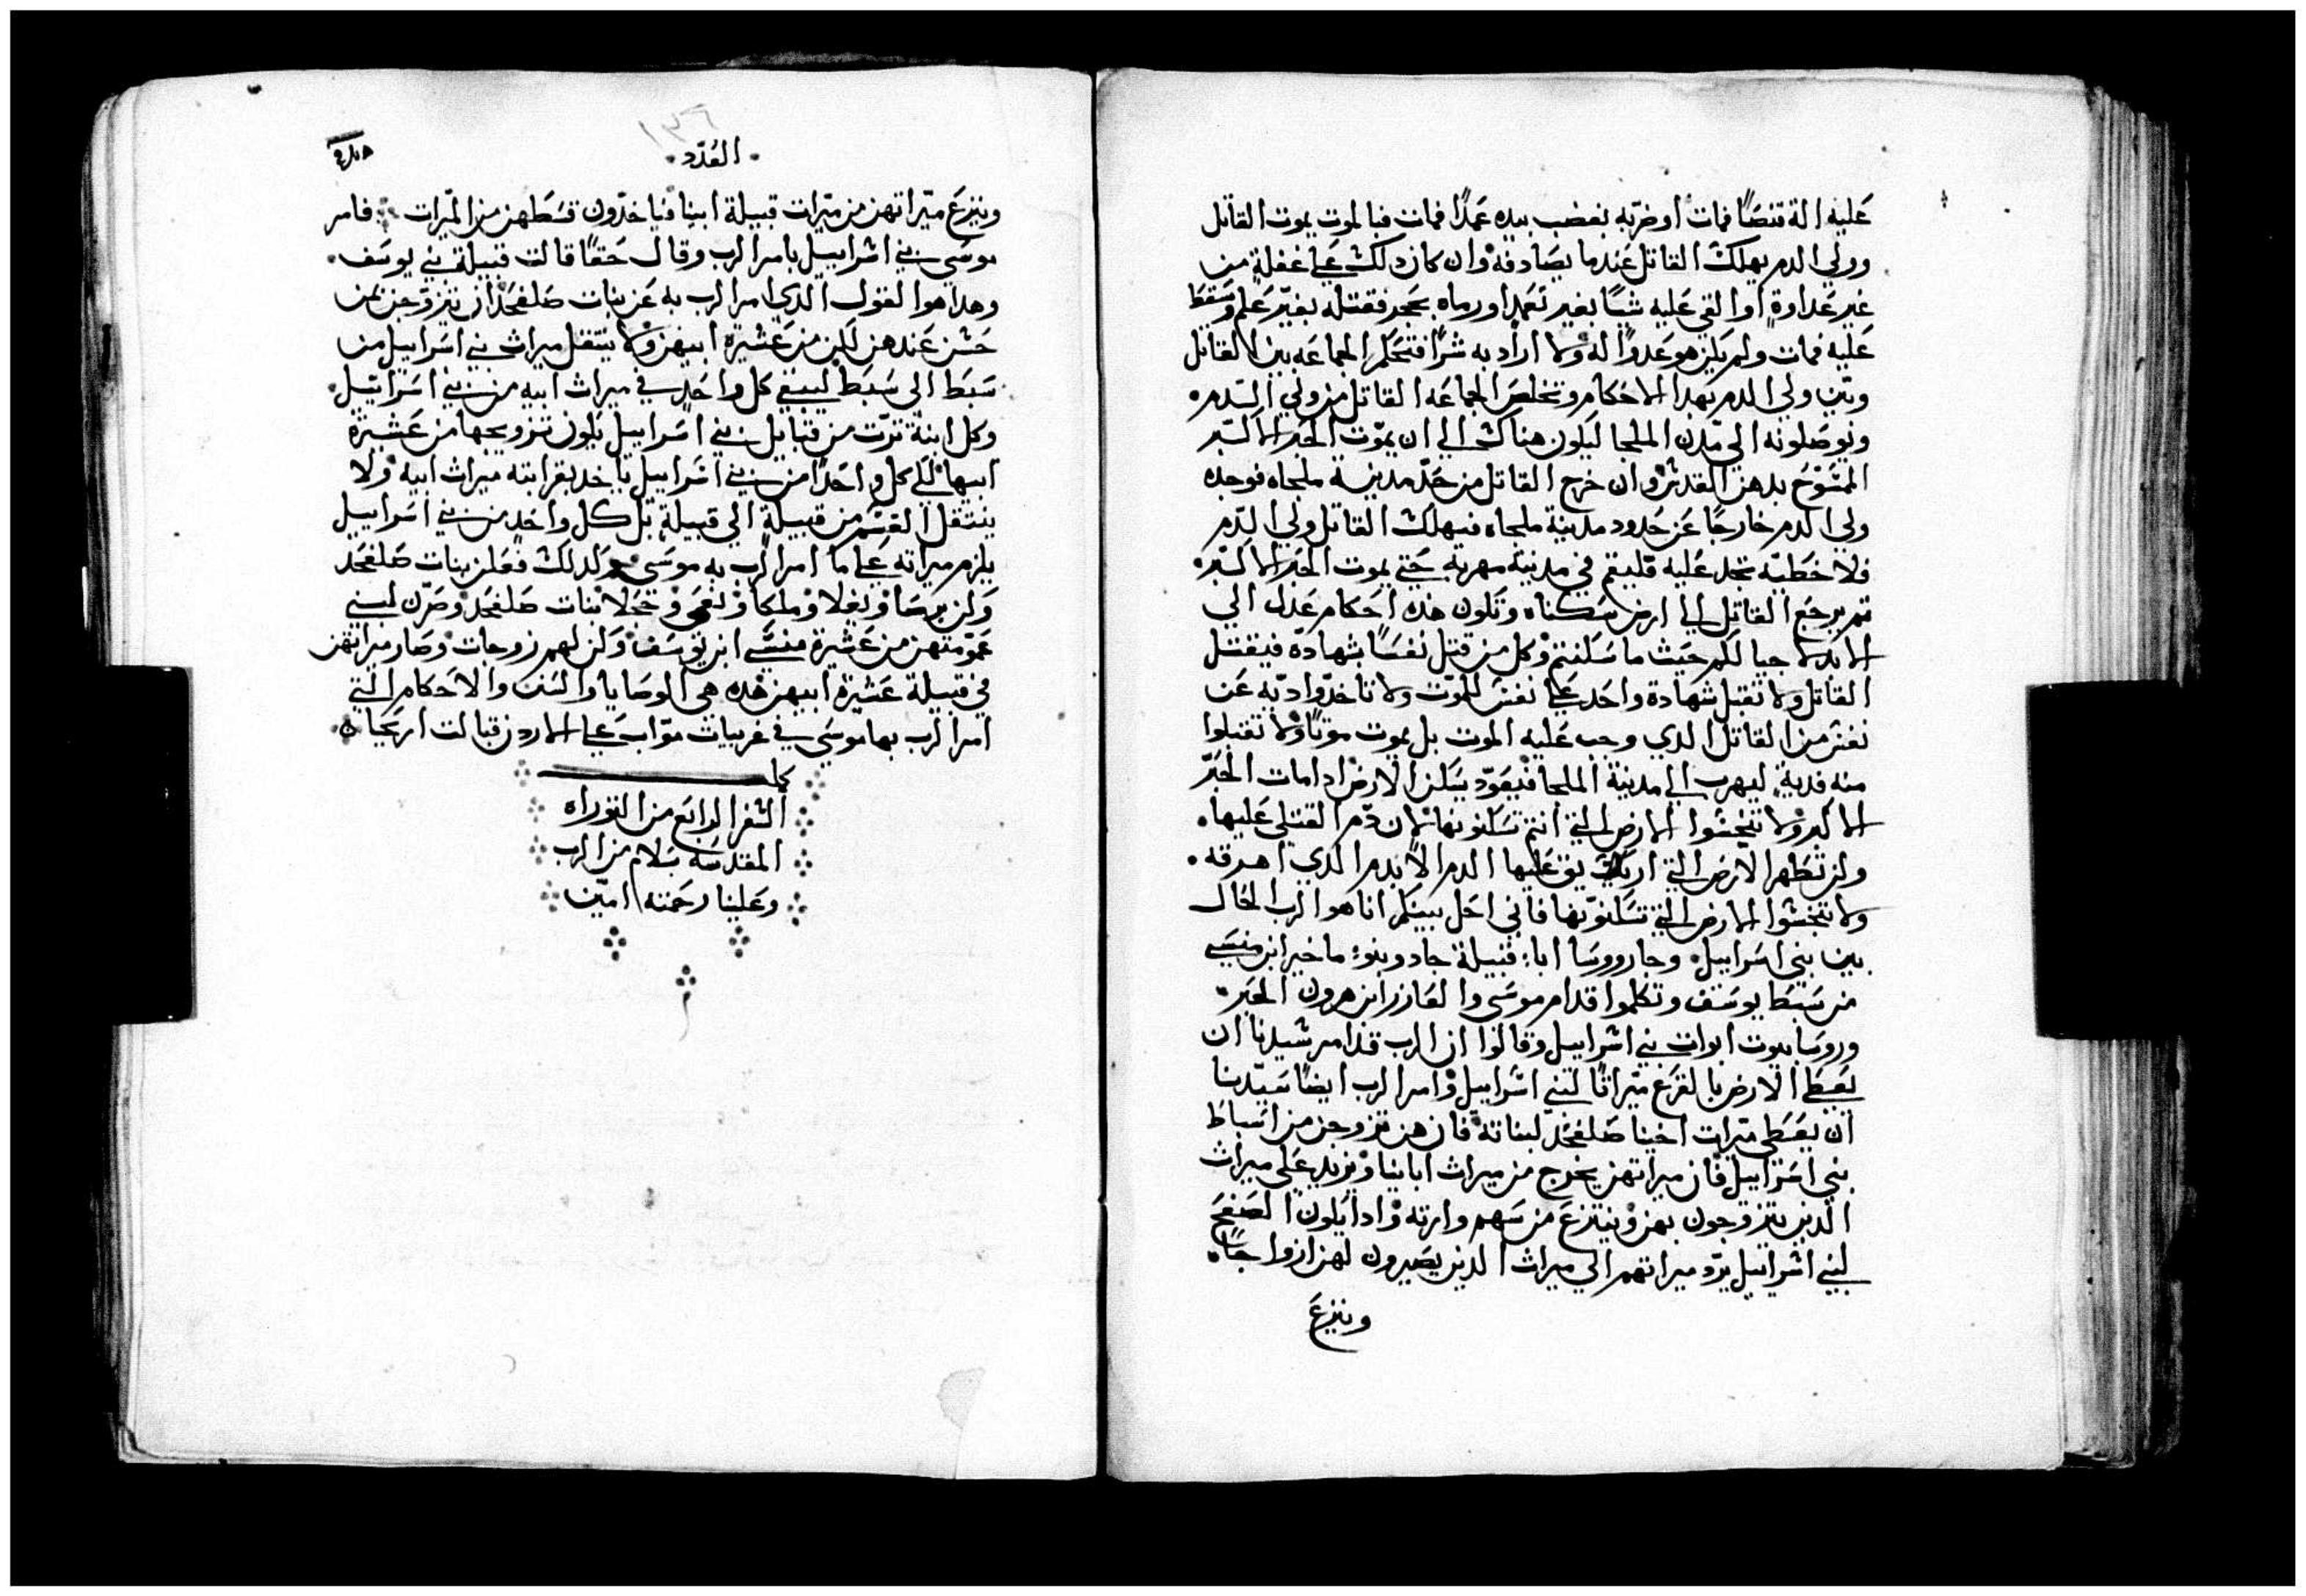 عليه الة قنصًا فمات او ضربه بغضب بيده عمدًا فمات فبالموت يموت القاتل
وولي الدم يهلك القاتل عندما يصادفه وان كان دلك علي غفلة من
غير عداوة او القي عليه شيًا بغير تعمد او رماه بحجر فقتله بغير علم وسقط
عليه فمات ولم يكن هو عدوًا له ولا اراد به شرًا فتحكم الجماعه بين القاتل
وبين ولي الدم بهدا الاحكام وتخلص الجماعه القاتل من ولي الدم
ويوصلونه الي مدن الملجا ليكون هناك الي ان يموت الحبر الاكبر
الممسوح بدهن القدس وان خرج القاتل من حد مدينة ملجاه فوجده
ولي الدم خارجًا عن حدود مدينة ملجاه فيهلك القاتل ولي الدم
فلا خطيه تجد عليه فليقم في مدينة مهربه حتي يموت الحبر الاكبر
ثم يرجع القاتل الي ارض سكناه وتكون هده احكام عدل الي
الابد لاجيالكم حيث ما سكنتم وكل من قتل نفسًا بشهادة فيقتل
القاتل ولا تقبل شهادة واحد علي نفس للموت ولا تاخدوا ديه عن
نفس من القاتل الدي وجب عليه الموت بل يموت موتًا ولا تقبلوا
منه فدية ليهرب الي مدينة الملجا فيعود يسكن الارض ادا مات الحبر
الاكبر ولا تنجسوا الارض التي انتم تسكنونها لان دم القتلي عليها
ولن تطهر الارض التي اريق عليها الدم الا بدم الدي اهرقه
ولا تنجسوا الارض التي تسكنونها فاني احل بينكم انا هو الرب الحال
بين بني اسراييل وجا روسا ابا قبيلة جاد وبنو ماخير ابن منسي
من سبط يوسف وتكلموا قدام موسي والعازر ابن هرون الحبر
وروسا بيوت ابوات بني اسراييل وقالوا ان الرب قد امر سيدنا ان
يعطي الارض بالقرع ميراثًا لبني اسراييل وامر الرب ايضًا سيدنا
ان يعطي ميرات اخينا صلفحد لبناته فان هن تزوجن من اسباط
بني اسراييل فان ميراتهن يخرج من ميراث اباينا ويزيد علي ميراث
الدين يتزوجون بهن وينتزع من سهم وارته وادا يكون الصفح
لبني اسراييل يرد ميراتهم الي ميراث الدين يصيرون لهن ازواجًا
وينزع
العدد
وينزع ميراتهن من ميرات قبيلة ابينا فياخدون قسطهن من الميرات فامر
موسي بني اسراييل بامر الرب وقال حقًا قالت قبيلة بني يوسف
وهدا هو القول الدي امر الرب به عن بنات صلفحد ان يتزوجن بمن
حسن عندهن لكن من عشيرة ابيهن ولا ينتقل ميراث بني اسراييل من
سبط الي سبط ليبقي كل واحد في ميراث ابيه من بني اسراييل
وكل ابنة ترث من قبايل بني اسراييل يكون تزويجها من عشيرة
ابيها لكي كل واحد من بني اسراييل ياخد بقرابته ميراث ابيه ولا
ينتقل القسم من قبيلة الي قبيلة بل كل واحد من بني اسراييل
يلزم ميراته علي ما امر الرب به موسي ولدلك فعلن بنات صلفحد
ولن برصا ونعلا وملكا ونعمي وحجلا بنات صلفحد وصرن لبني
عمومتهن من عشيرة منسي ابن يوسف ولن لهم زوجات وصار ميراتهن
في قبيلة عشيرة ابيهن هده هي الوصايا والسنن والاحكام التي
امر الرب بها موسي في غربيات مواب علي الاردن قبالت اريحا
كمل
السفر الرابع من التوراه
المقدسه بسلام من الرب
وعلينا رحمته امين